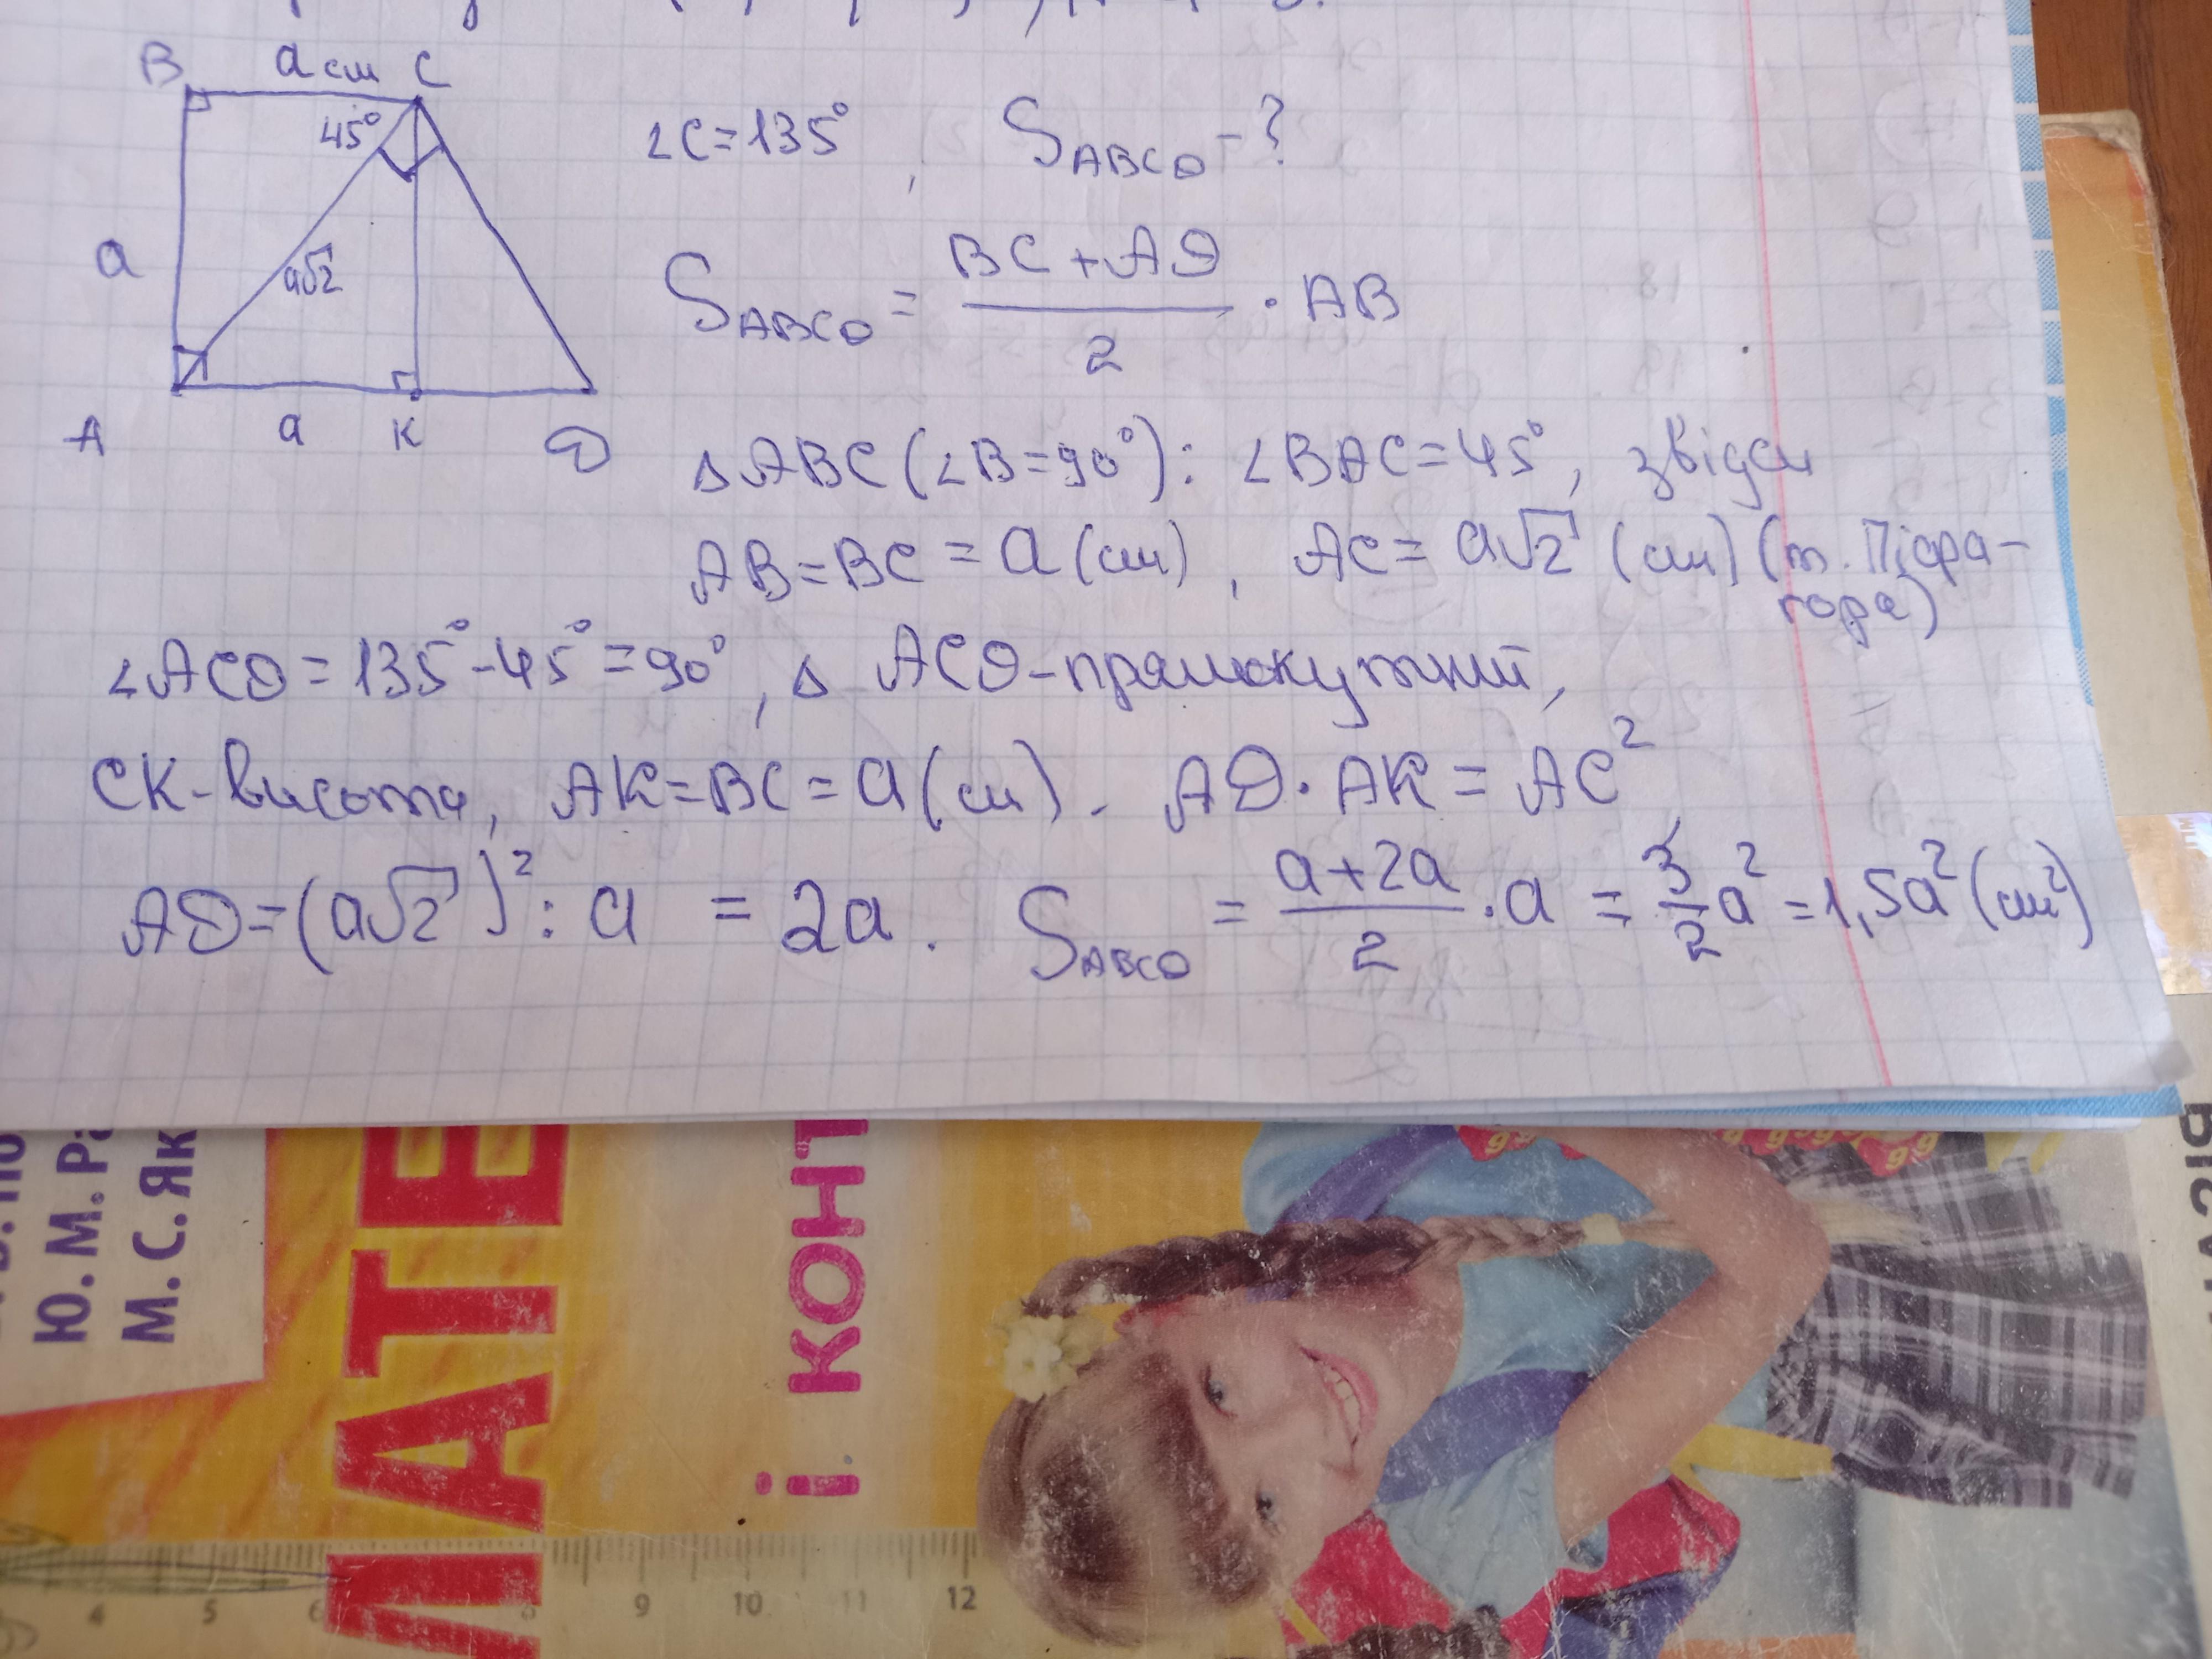 B a см C
45°
∠C=135°, S_ABCD - ?
a
a√2
S_ABCD = (BC+AD)/2 · AB
A a K D
△ABC (∠B=90°): ∠BAC=45°, звідси
AB=BC=a(см), AC=a√2 (см) (т. Піфа-
гора)
∠ACD=135°-45°=90°, △ ACD-прямокутний,
CK-висота, AK=BC=a(см). AD·AK=AC²
AD=(a√2)²:a = 2a. S_ABCD = (a+2a)/2 ·a = 3/2 a² = 1,5a² (см²)
Ю. М.
М. С. Як
МАТЕ
і КОНТ
4 5 6 8 9 10 11 12